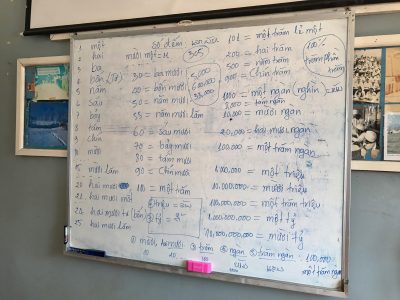 Số đếm:
1 một
2 hai
3 ba
4 bốn (tư)
5 năm
6 sáu
7 bảy
8 tám
9 chín
10 mười
15 mười lăm
20 hai mươi
21 hai mươi mốt
24 hai mươi tư
25 hai mươi lăm
30 = ba mươi
40 = bốn mươi
50 = năm mươi
55 = năm mươi lăm
60 = sáu mươi
70 = bảy mươi
80 = tám mươi
90 = chín mươi
100 = một trăm
305
5,000
101 = một trăm lẻ một
200 = hai trăm
500 = năm trăm
900 = chín trăm
1000 = một ngàn nghìn
10,000 = mười ngàn
20,000 = hai mươi ngàn
100,000 = một trăm ngàn
= một triệu
10.000.000 = mười triệu
100.000.000 = một trăm triệu
1.000.000.000 = một tỷ
= mười tỷ
100%
trăm phần trăm
① mười, hai mươi ③ trăm ④ ngàn ⑤ trăm ngàn: 100,000
một trăm ngàn